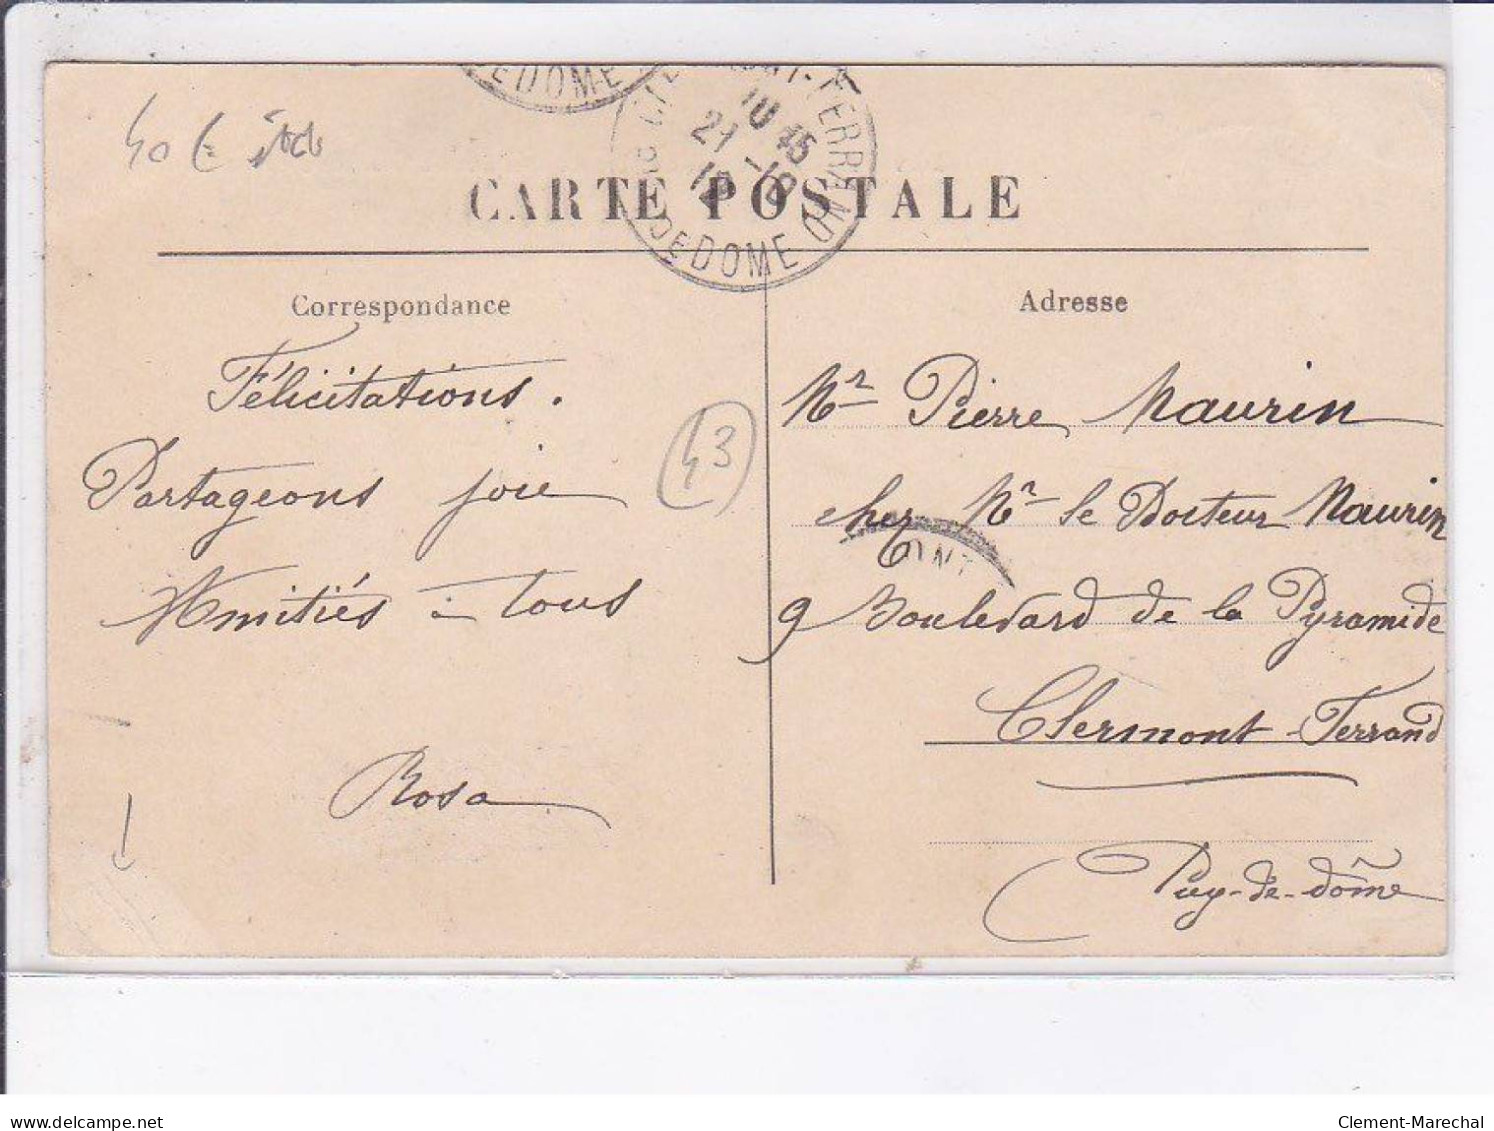 DEDOME
CLERMONT-FERRAND
10 45
21 -10
12
PUY DE DOME
40 €
CARTE POSTALE
Correspondance
Félicitations.
Partageons joie
Amitiés à tous
Rosa
43
Adresse
Mr Pierre Maurin
chez Mr le Docteur Maurin
ONT
9 Boulevard de la Pyramide
Clermont-Ferrand
Puy-de-dôme
www.delcampe.net
Clement-Marechal